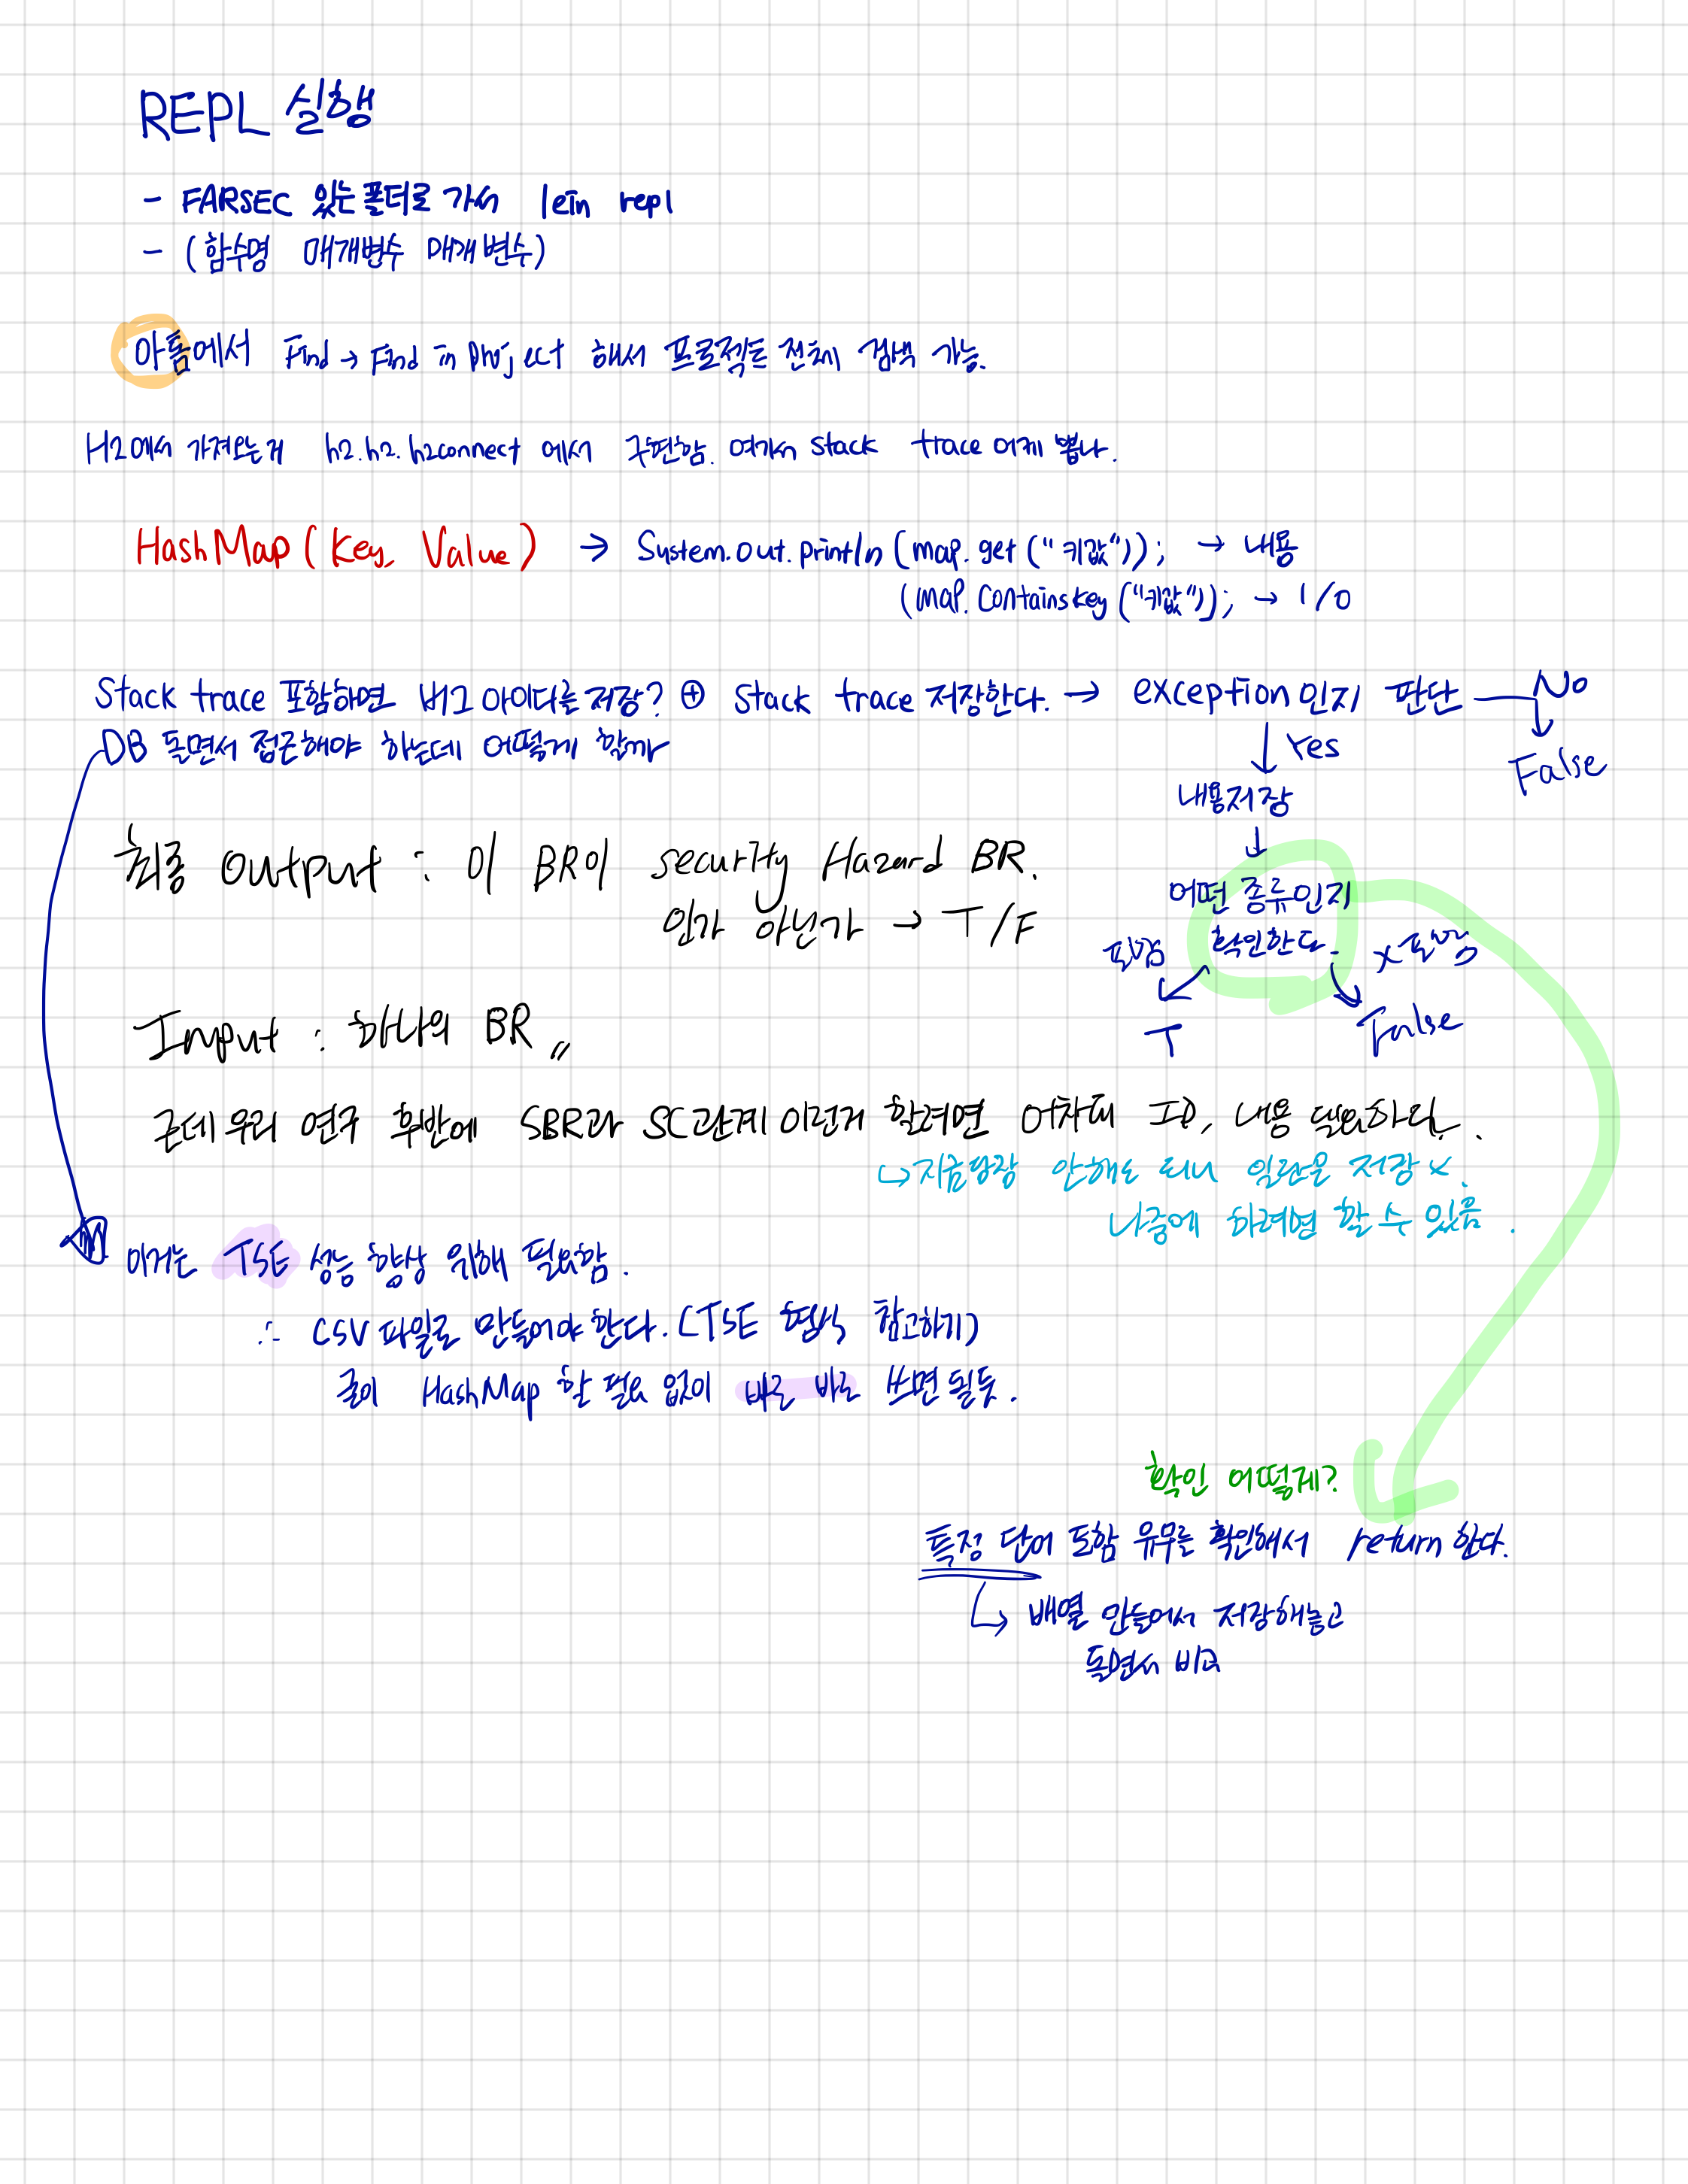 REPL 실행
- FARSEC 있는 폴더로 가서 lein repl
- (함수명 매개변수 매개변수)
아톰에서 Find → Find in project 해서 프로젝트 전체 검색 가능.
H2에서 가져오는게 h2.h2.h2connect 에서 구현함. 여기서 stack trace 어케 뽑나.
HashMap (Key, Value) → System.out.println (map.get ("키값")); → 내용
(map.containskey ("키값")); → 1/0
Stack trace 포함하면 버그 아이디를 저장? ⊕ Stack trace 저장한다. → exception 인지 판단 — No
DB 돌면서 접근해야 하는데 어떻게 할까
↓ Yes
↓
False
내용저장
↓
최종 output : 이 BR이 security Hazard BR.
인가 아닌가 → T/F
어떤 종류인지
확인한다.
포함
x 포함
T
False
Input : 하나의 BR 〃
근데 우리 연구 후반에 SBR과 SC관계 이런거 할려면 어차피 ID, 내용 필요하다.
↳ 지금당장 안해도 되니 일단은 저장 x.
나중에 하려면 할 수 있음.
이거는 TSE 성능 향상 위해 필요함.
∴ CSV 파일로 만들어야 한다. (TSE 형식 참고하기)
굳이 HashMap 할 필요 없이 바로 바로 쓰면 될듯.
확인 어떻게?
특정 단어 포함 유무를 확인해서 return 한다.
↳ 배열 만들어서 저장해놓고
돌면서 비교